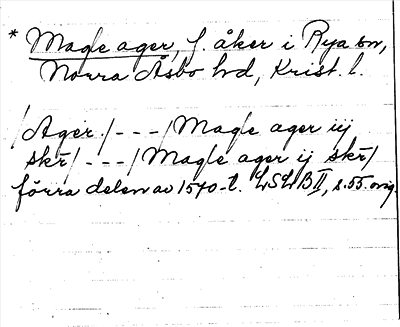 * Magle ager, f. åker i Rya sn,
Norra Åsbo hd, Krist. l.
/Ager./---/Magle ager iij
skr̄/---/Magle ager ij skr̄/
förra delen av 1540-t. LSLB II, s. 55. orig.